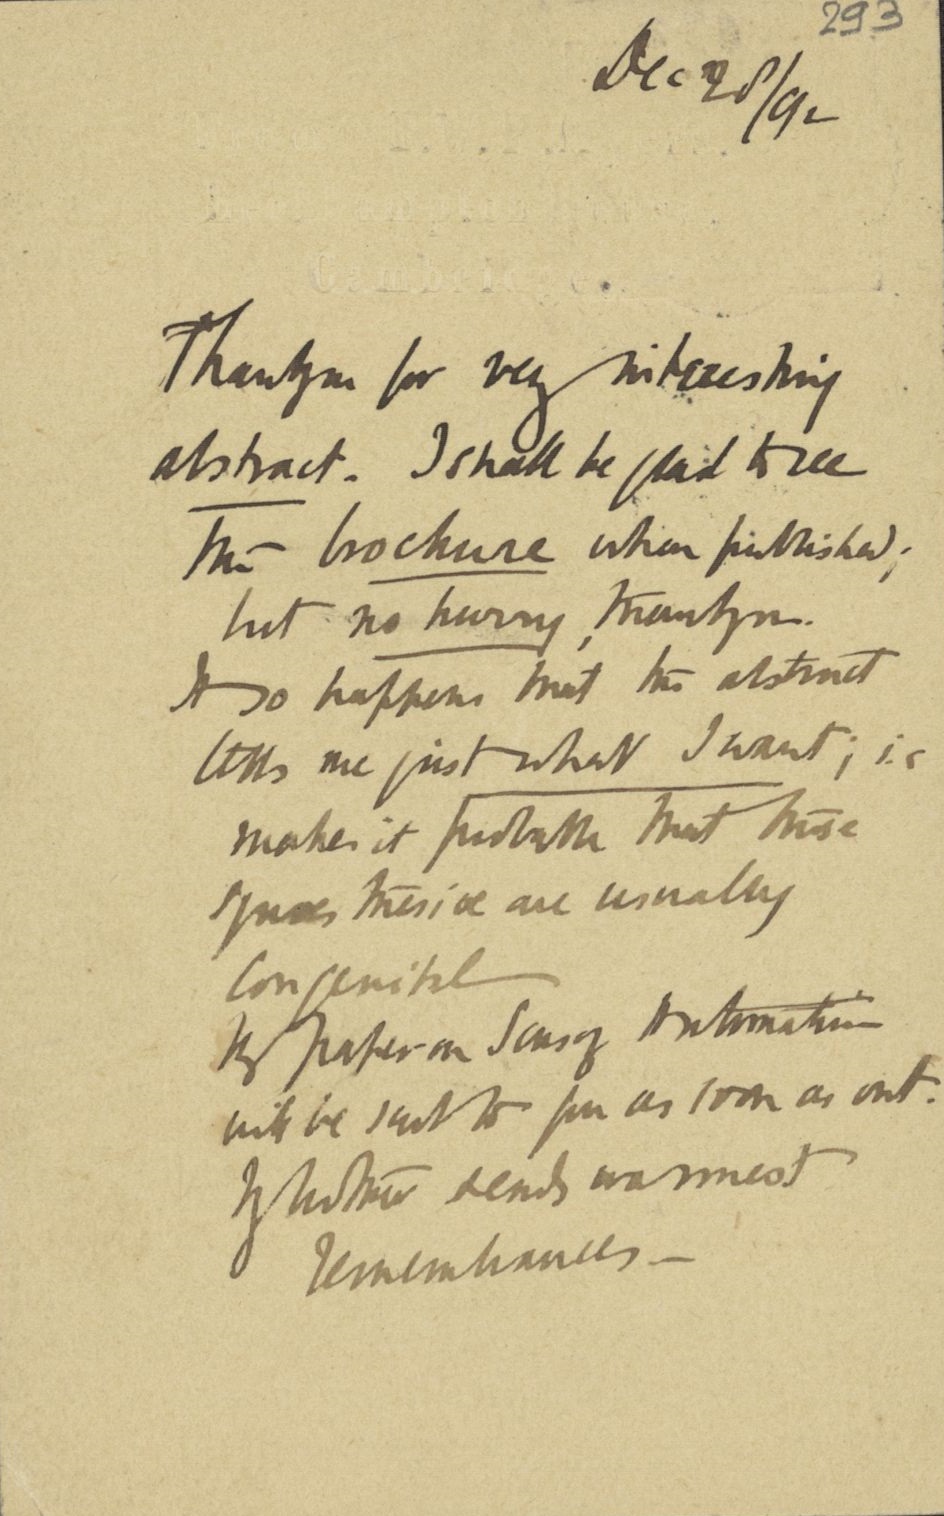 293
Dec 28/92
Cambridge
Thank you for very interesting
abstract. I shall be glad to see
the brochure when published;
but no hurry, thank you.
It so happens that the abstract
tells me just what I want; i.e
makes it probable that these
synaesthesiae are usually
congenital
My paper on Sensory Automatism
will be sent to you as soon as out.
My brother sends warmest
remembrances –